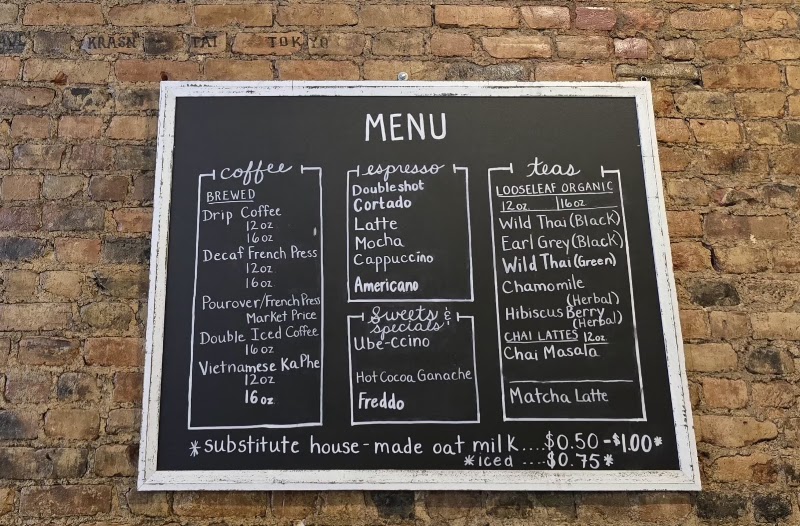 KRASN TAI TOKYO
MENU
coffee
BREWED
Drip Coffee
12oz
16oz
Decaf French Press
12oz
16oz
Pourover/French Press
Market Price
Double Iced Coffee
16oz
Vietnamese KaPhe
12oz
16oz
espresso
Doubleshot
Cortado
Latte
Mocha
Cappuccino
Americano
Sweets &
specials
Ube-ccino
Hot Cocoa Ganache
Freddo
teas
LOOSELEAF ORGANIC
12oz | 16oz
Wild Thai (Black)
Earl Grey (Black)
Wild Thai (Green)
Chamomile
(Herbal)
Hibiscus Berry
(Herbal)
CHAI LATTES 12oz
Chai Masala
Matcha Latte
*substitute house-made oat milk....$0.50-$1.00*
*iced ....$0.75*